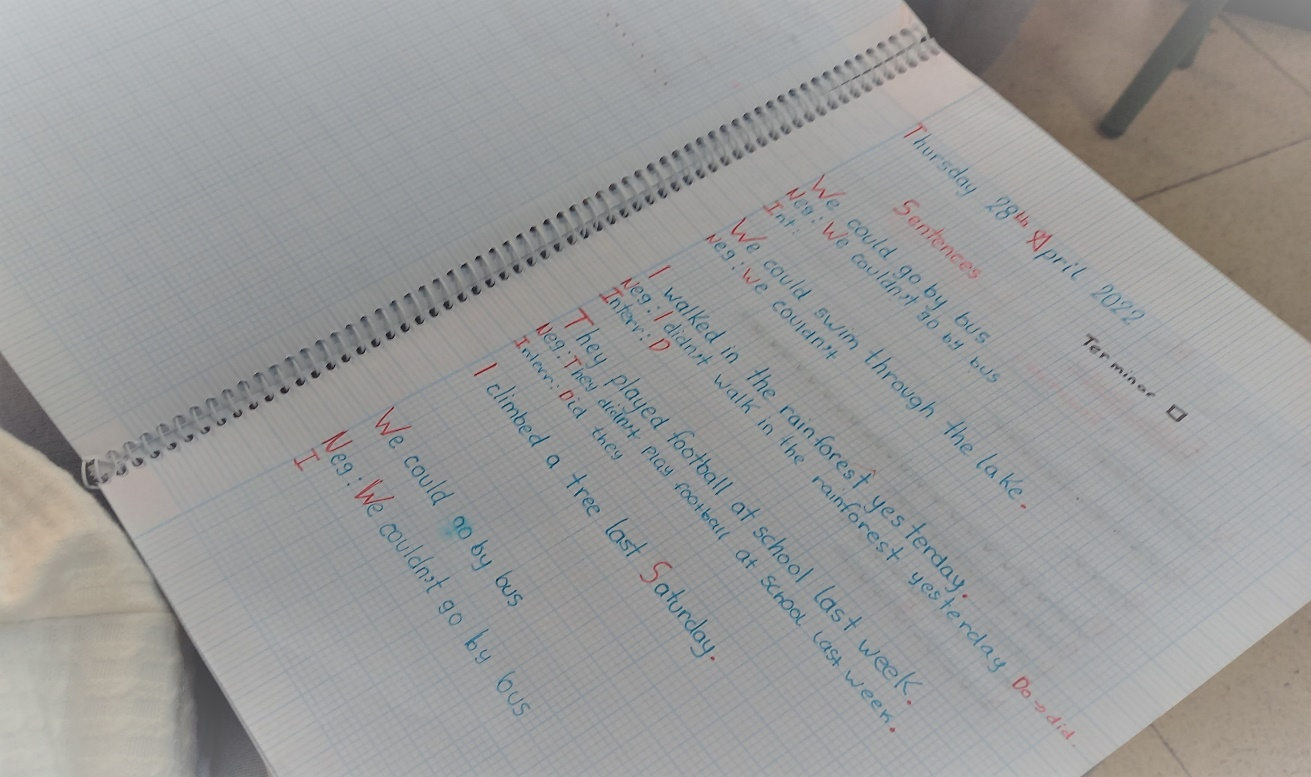 Thursday 28th April 2022
Terminar
Sentences
We could go by bus
Neg: We couldn't go by bus
Int:
We could swim through the lake.
Neg: We couldn't
I walked in the rainforest yesterday.
Neg: I didn't walk in the rainforest yesterday Do → did.
Interr: D
They played football at school last week.
Neg: They didn't play football at school last week.
Interr: Did they
I climbed a tree last Saturday.
We could go by bus
Neg: We couldn't go by bus
I